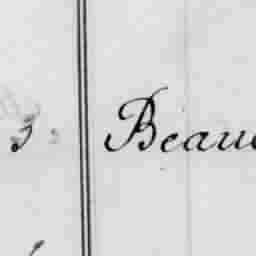 3. Beau